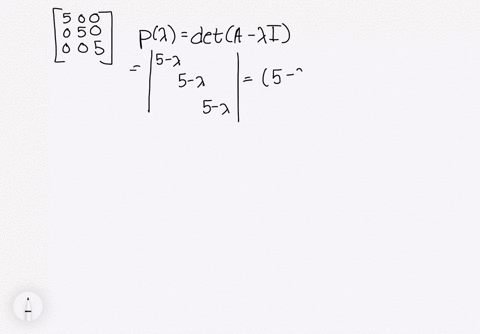 [5 0 0
0 5 0
0 0 5]
P(λ) = det(A - λI)
= |5-λ
5-λ
5-λ| = (5-